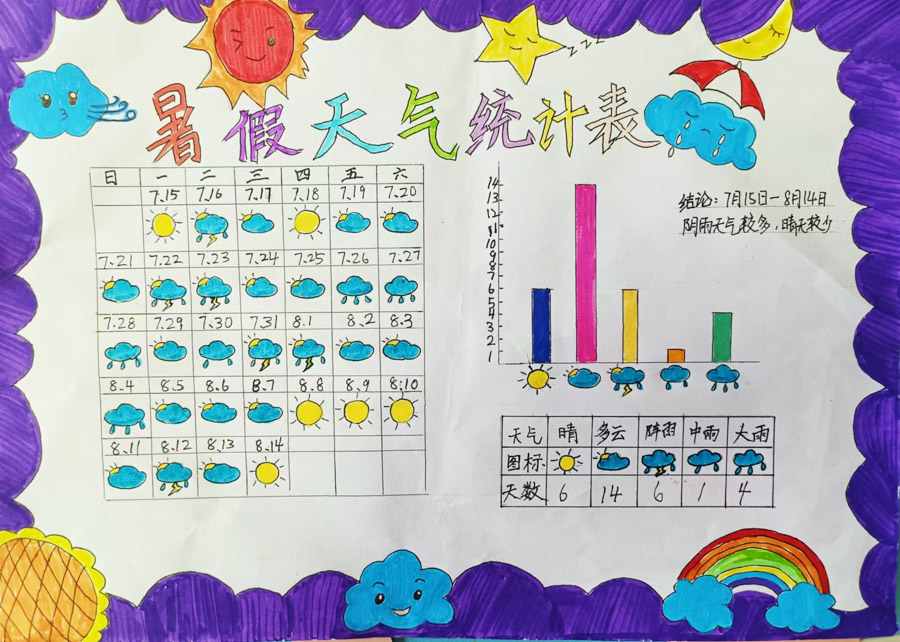 暑假天气统计表
zzz
日 一 二 三 四 五 六
7.15 7.16 7.17 7.18 7.19 7.20
7.21 7.22 7.23 7.24 7.25 7.26 7.27
7.28 7.29 7.30 7.31 8.1 8.2 8.3
8.4 8.5 8.6 8.7 8.8 8.9 8.10
8.11 8.12 8.13 8.14
14
13
12
11
10
9
8
7
6
5
4
3
2
1
结论:7月15日—8月14日
阴雨天气较多,晴天较少
天气 晴 多云 阵雨 中雨 大雨
图标
天数 6 14 6 1 4